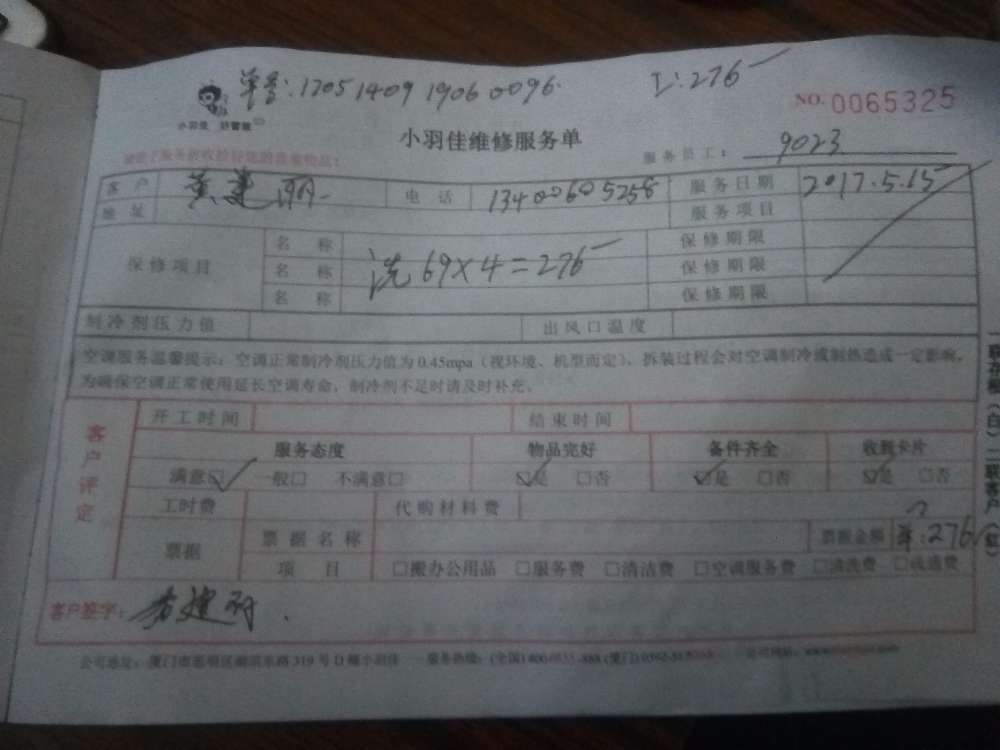 单号:1705 1409 1906 0096. 工:276
NO. 0065325
小羽佳维修服务单
服务员工: 9023
客户 黄建丽 电话 13400605258 服务日期 2017.5.15
地址 服务项目
保修项目 名称 保修期限
名称 洗 69×4=276 保修期限
名称 保修期限
制冷剂压力值 出风口温度
空调服务温馨提示:空调正常制冷剂压力值为0.45mpa(视环境、机型而定)、拆装过程会对空调制冷或制热造成一定影响,
为确保空调正常使用延长空调寿命,制冷剂不足时请及时补充。
客户评定
开工时间 结束时间
服务态度 物品完好 备件齐全 收到卡片
满意☑ 一般□ 不满意□ ☑是 □否 ☑是 □否 ☑是 □否
工时费 代购材料费
票据 票据名称 票据金额 羊:276
项目 □搬办公用品 □服务费 □清洁费 □空调服务费 □清洗费 □疏通费
客户签字:
公司地址:厦门市思明区 319号D幢小羽佳 服务热线:(全国)400 -888 (厦门)0592- 公司网站:
一联存根(白)二联客户(红)